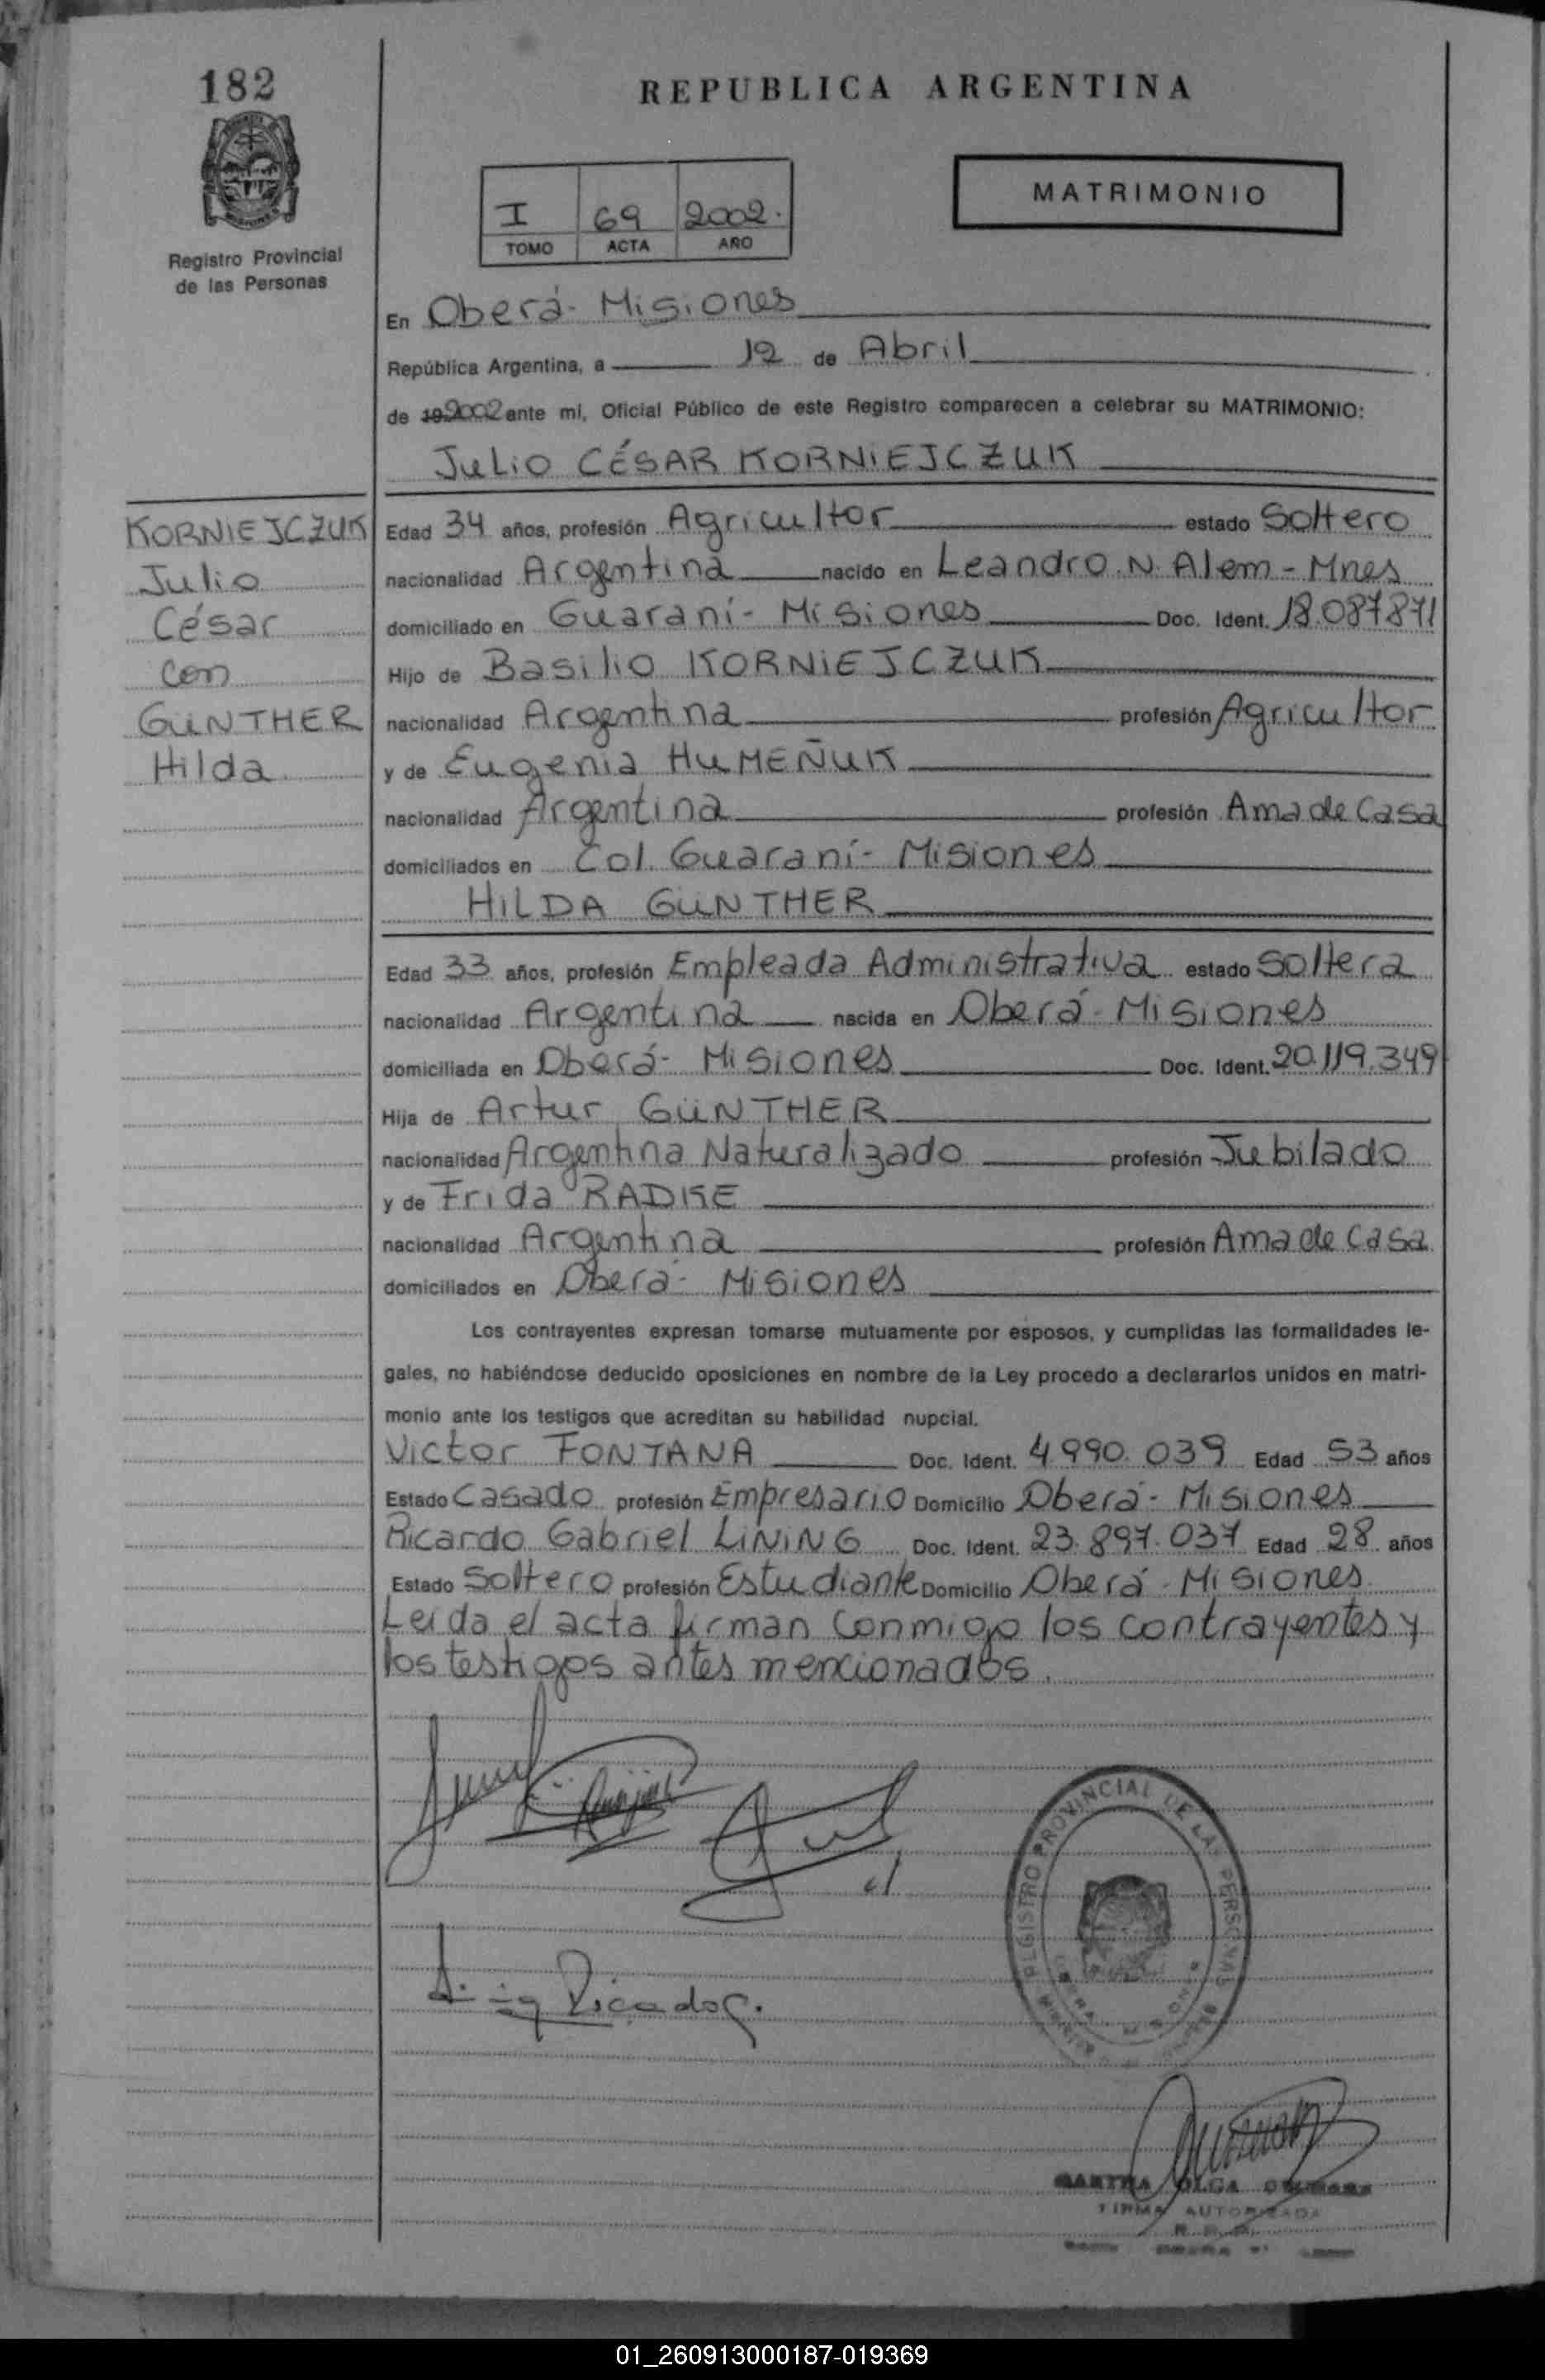 182
REPUBLICA ARGENTINA
MATRIMONIO
I 69 2002.
TOMO ACTA AÑO
Registro Provincial
de las Personas
En Oberá - Misiones
República Argentina, a 12 de Abril
de 19 2002 ante mí, Oficial Público de este Registro comparecen a celebrar su MATRIMONIO:
JULIO CÉSAR KORNIEJCZUK
KORNIEJCZUK
Julio
César
con
GÜNTHER
Hilda
Edad 34 años, profesión Agricultor estado Soltero
nacionalidad Argentina nacido en Leandro N. Alem - Mnes
domiciliado en Guaraní - Misiones Doc. Ident. 18.087871
Hijo de Basilio KORNIEJCZUK
nacionalidad Argentina profesión Agricultor
y de Eugenia HUMEÑUK
nacionalidad Argentina profesión Ama de Casa
domiciliados en Col. Guaraní - Misiones
HILDA GÜNTHER
Edad 33 años, profesión Empleada Administrativa estado Soltera
nacionalidad Argentina nacida en Oberá - Misiones
domiciliada en Oberá - Misiones Doc. Ident. 20.119.349
Hija de Artur GÜNTHER
nacionalidad Argentina Naturalizado profesión Jubilado
y de Frida RADKE
nacionalidad Argentina profesión Ama de Casa
domiciliados en Oberá - Misiones
Los contrayentes expresan tomarse mutuamente por esposos, y cumplidas las formalidades le-
gales, no habiéndose deducido oposiciones en nombre de la Ley procedo a declararlos unidos en matri-
monio ante los testigos que acreditan su habilidad nupcial.
Victor FONTANA Doc. Ident. 4.990.039 Edad 53 años
Estado Casado profesión Empresario Domicilio Oberá - Misiones
Ricardo Gabriel LINING Doc. Ident. 23.897.037 Edad 28 años
Estado Soltero profesión Estudiante Domicilio Oberá - Misiones
Leída el acta firman conmigo los contrayentes y
los testigos antes mencionados.
REGISTRO PROVINCIAL DE LAS PERSONAS
Ricardo G.
OLGA
FIRMA AUTORIZADA
01_260913000187-019369